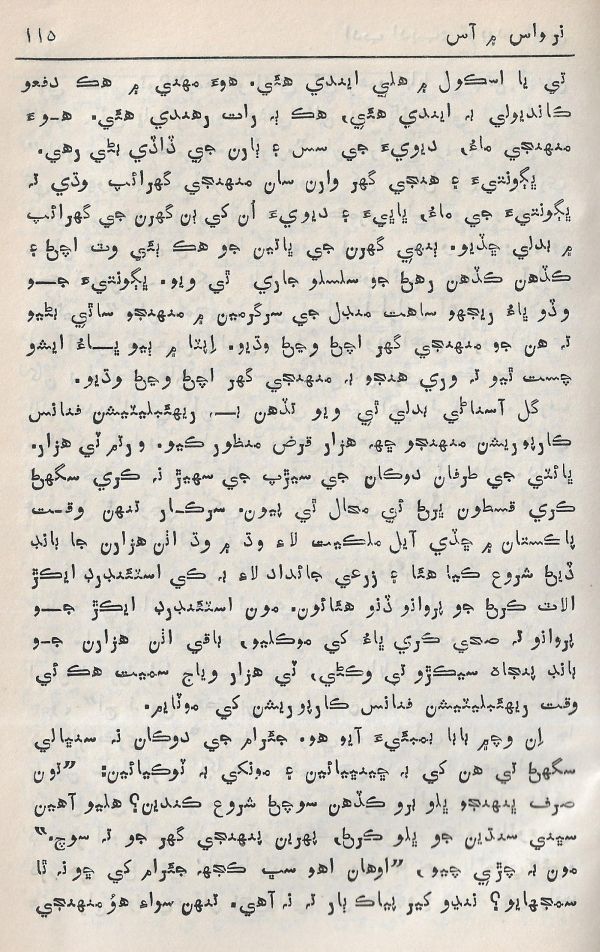 نرواس ۾ آس ۱۱۵
ٿي يا اسڪول ۾ هلي ايندي هئي. هوءَ مهني ۾ هڪ دفعو
کانديولي بہ ايندي هئي، هڪ ٻہ رات رهندي هئي. هوءَ
منهنجي ماءُ، ديويءَ جي سس ۽ ٻارن جي ڏاڏي بڻي رهي.
ڀڳونتيءَ ۽ هنجي گهر وارن سان منهنجي گهرائپ وڌي تہ
ڀڳونتيءَ جي ماءُ، ڀاڀيءَ ۽ ديويءَ اُن کي ٻن گهرن جي گهرائپ
۾ بدلي ڇڏيو. ٻنهي گهرن جي ڀاتين جو هڪ ٻئي وٽ اچڻ ۽
ڪڏهن ڪڏهن رهڻ جو سلسلو جاري ٿي ويو. ڀڳونتيءَ جو
وڏو ڀاءُ ريجهو ساهت منڊل جي سرگرمين ۾ منهنجو ساٿي بڻيو
تہ هن جو منهنجي گهر اچڻ وڃڻ وڌيو. اِپٽا ۾ ٻيو ڀاءُ ايشو
چست ٿيو تہ وري هنجو بہ منهنجي گهر اچڻ وڃڻ وڌيو.
گل آستاڻي بدلي ٿي ويو تڏهن بہ، ريهئبليٽيشن فنانس
ڪارپوريشن منهنجو ڇهہ هزار قرض منظور ڪيو. ورتم ٽي هزار.
ڀائٽي جي طرفان دوڪان جي سيڙپ جي سهيڙ نہ ڪري سگهڻ
ڪري قسطون ڀرڻ ئي محال ٿي پيون. سرڪار تنهن وقت
پاڪستان ۾ ڇڏي آيل ملڪيت لاءِ وڌ ۾ وڌ اٺن هزارن جا بانڊ
ڏيڻ شروع ڪيا هئا ۽ زرعي جائداد لاءِ بہ کي اسٽئنڊرڊ ايڪڙ
الاٽ ڪرڻ جو پروانو ڏنو هئائون. مون اسٽئنڊرڊ ايڪڙ جو
پروانو تہ صحي ڪري ڀاءُ کي موڪليو، باقي اٺن هزارن جو
بانڊ پنجاهہ سيڪڙو تي وڪڻي، ٽي هزار وياج سميت هڪ ئي
وقت ريهئبليٽيشن فنانس ڪارپوريشن کي موٽايم.
اِن وچ۾ بابا بمبئيءَ آيو هو. جئرام جي دوڪان نہ سنڀالي
سگهڻ تي هن کي بہ ڇينڀيائين ۽ مونکي بہ ٽوڪيائين: ”تون
صرف پنهنجو ڀلو ٻرو ڪڏهن سوچڻ شروع ڪندين؟ هليو آهين
سڀني سنڌين جو ڀلو ڪرڻ، پهرين پنهنجي گهر جو تہ سوچ.“
مون بہ چڙي چيو، ”اوهان اهو سڀ ڪجهہ جئرام کي ڇو نہ ٿا
سمجهايو؟ ننڍو کير پياڪ ٻار تہ نہ آهي. تنهن سواءِ هوُ منهنجي